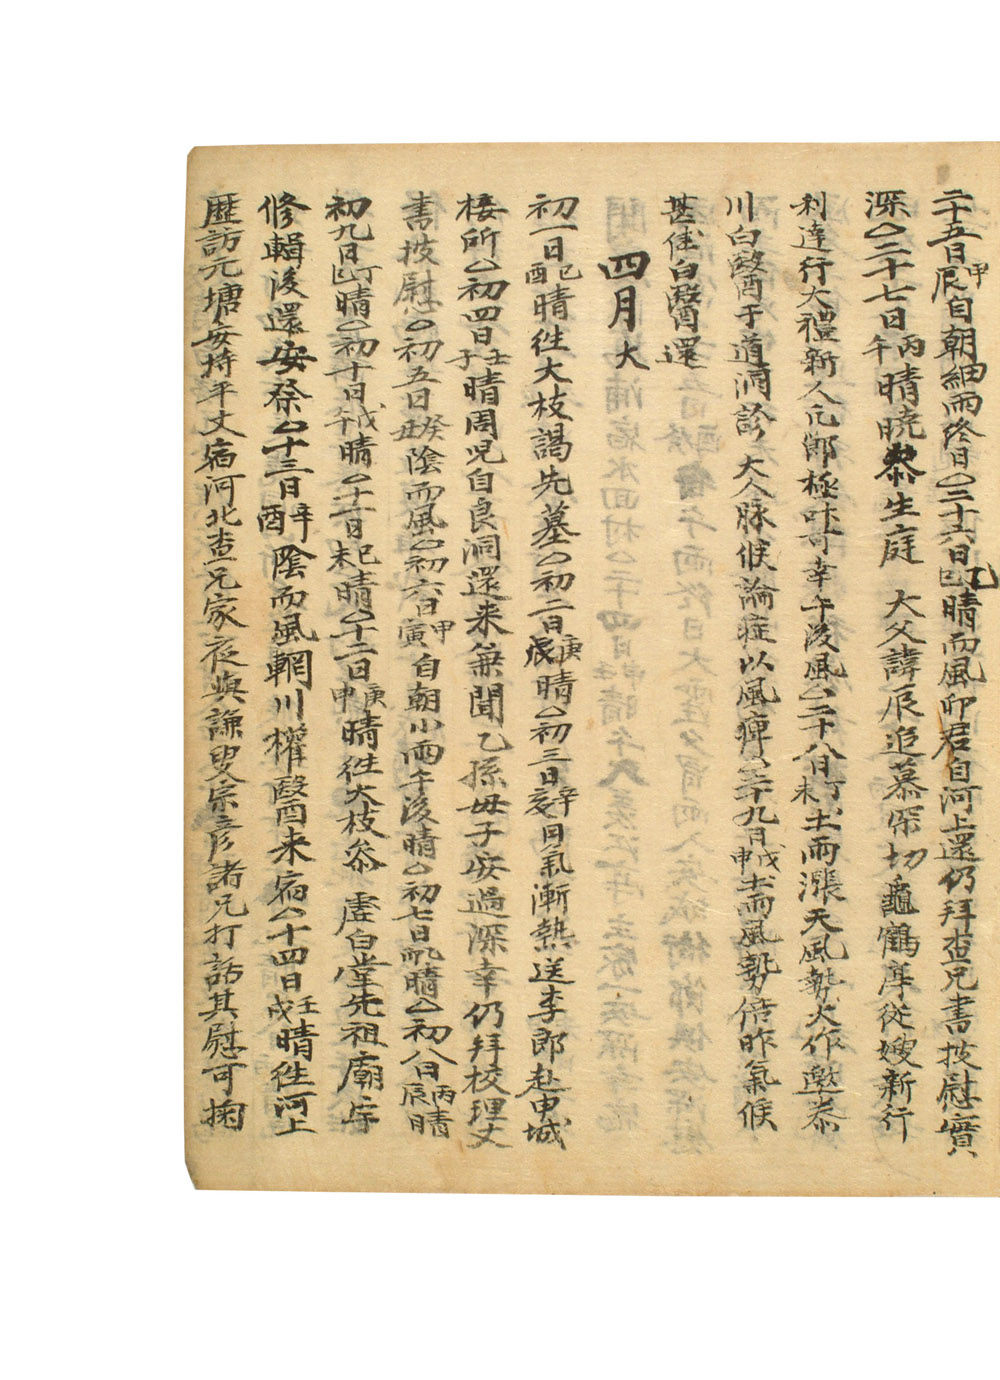 二十五日甲辰自朝細雨終日△二十六日乙巳晴而風卯君自河上還仍拜查兄書披慰實
深△二十七日丙午晴曉參生庭 大父諱辰追慕深切龜鶴庠從嫂新行
利達行大禮新人凡節極吐奇幸午後風△二十八日丁未土雨漲天風勢大作邀泰
川白醫于道洞診大人脉候論症以風痺△二十九日戊申土雨風勢倍昨氣候
甚佳白醫還
四月大
初一日己酉晴徃大枝謁先墓△初二日庚戌晴△初三日辛亥日氣漸熱送李郎赴申城
棲所△初四日壬子晴周児自良洞還来兼聞乙孫母子安過深幸仍拜校理丈
書披慰△初五日癸丑陰而風△初六日甲寅自朝小雨午後晴△初七日乙卯晴△初八日丙辰晴
初九日丁巳晴△初十日戊午晴△十一日己未晴△十二日庚申晴徃大枝参 虛白堂先祖廟宇
修輯後還安祭△十三日辛酉陰而風輞川權醫来宿△十四日壬戌晴徃河上
歷訪元塘安持平丈宿河北查兄家夜與謙叟宗彦諸兄打話其慰可掬